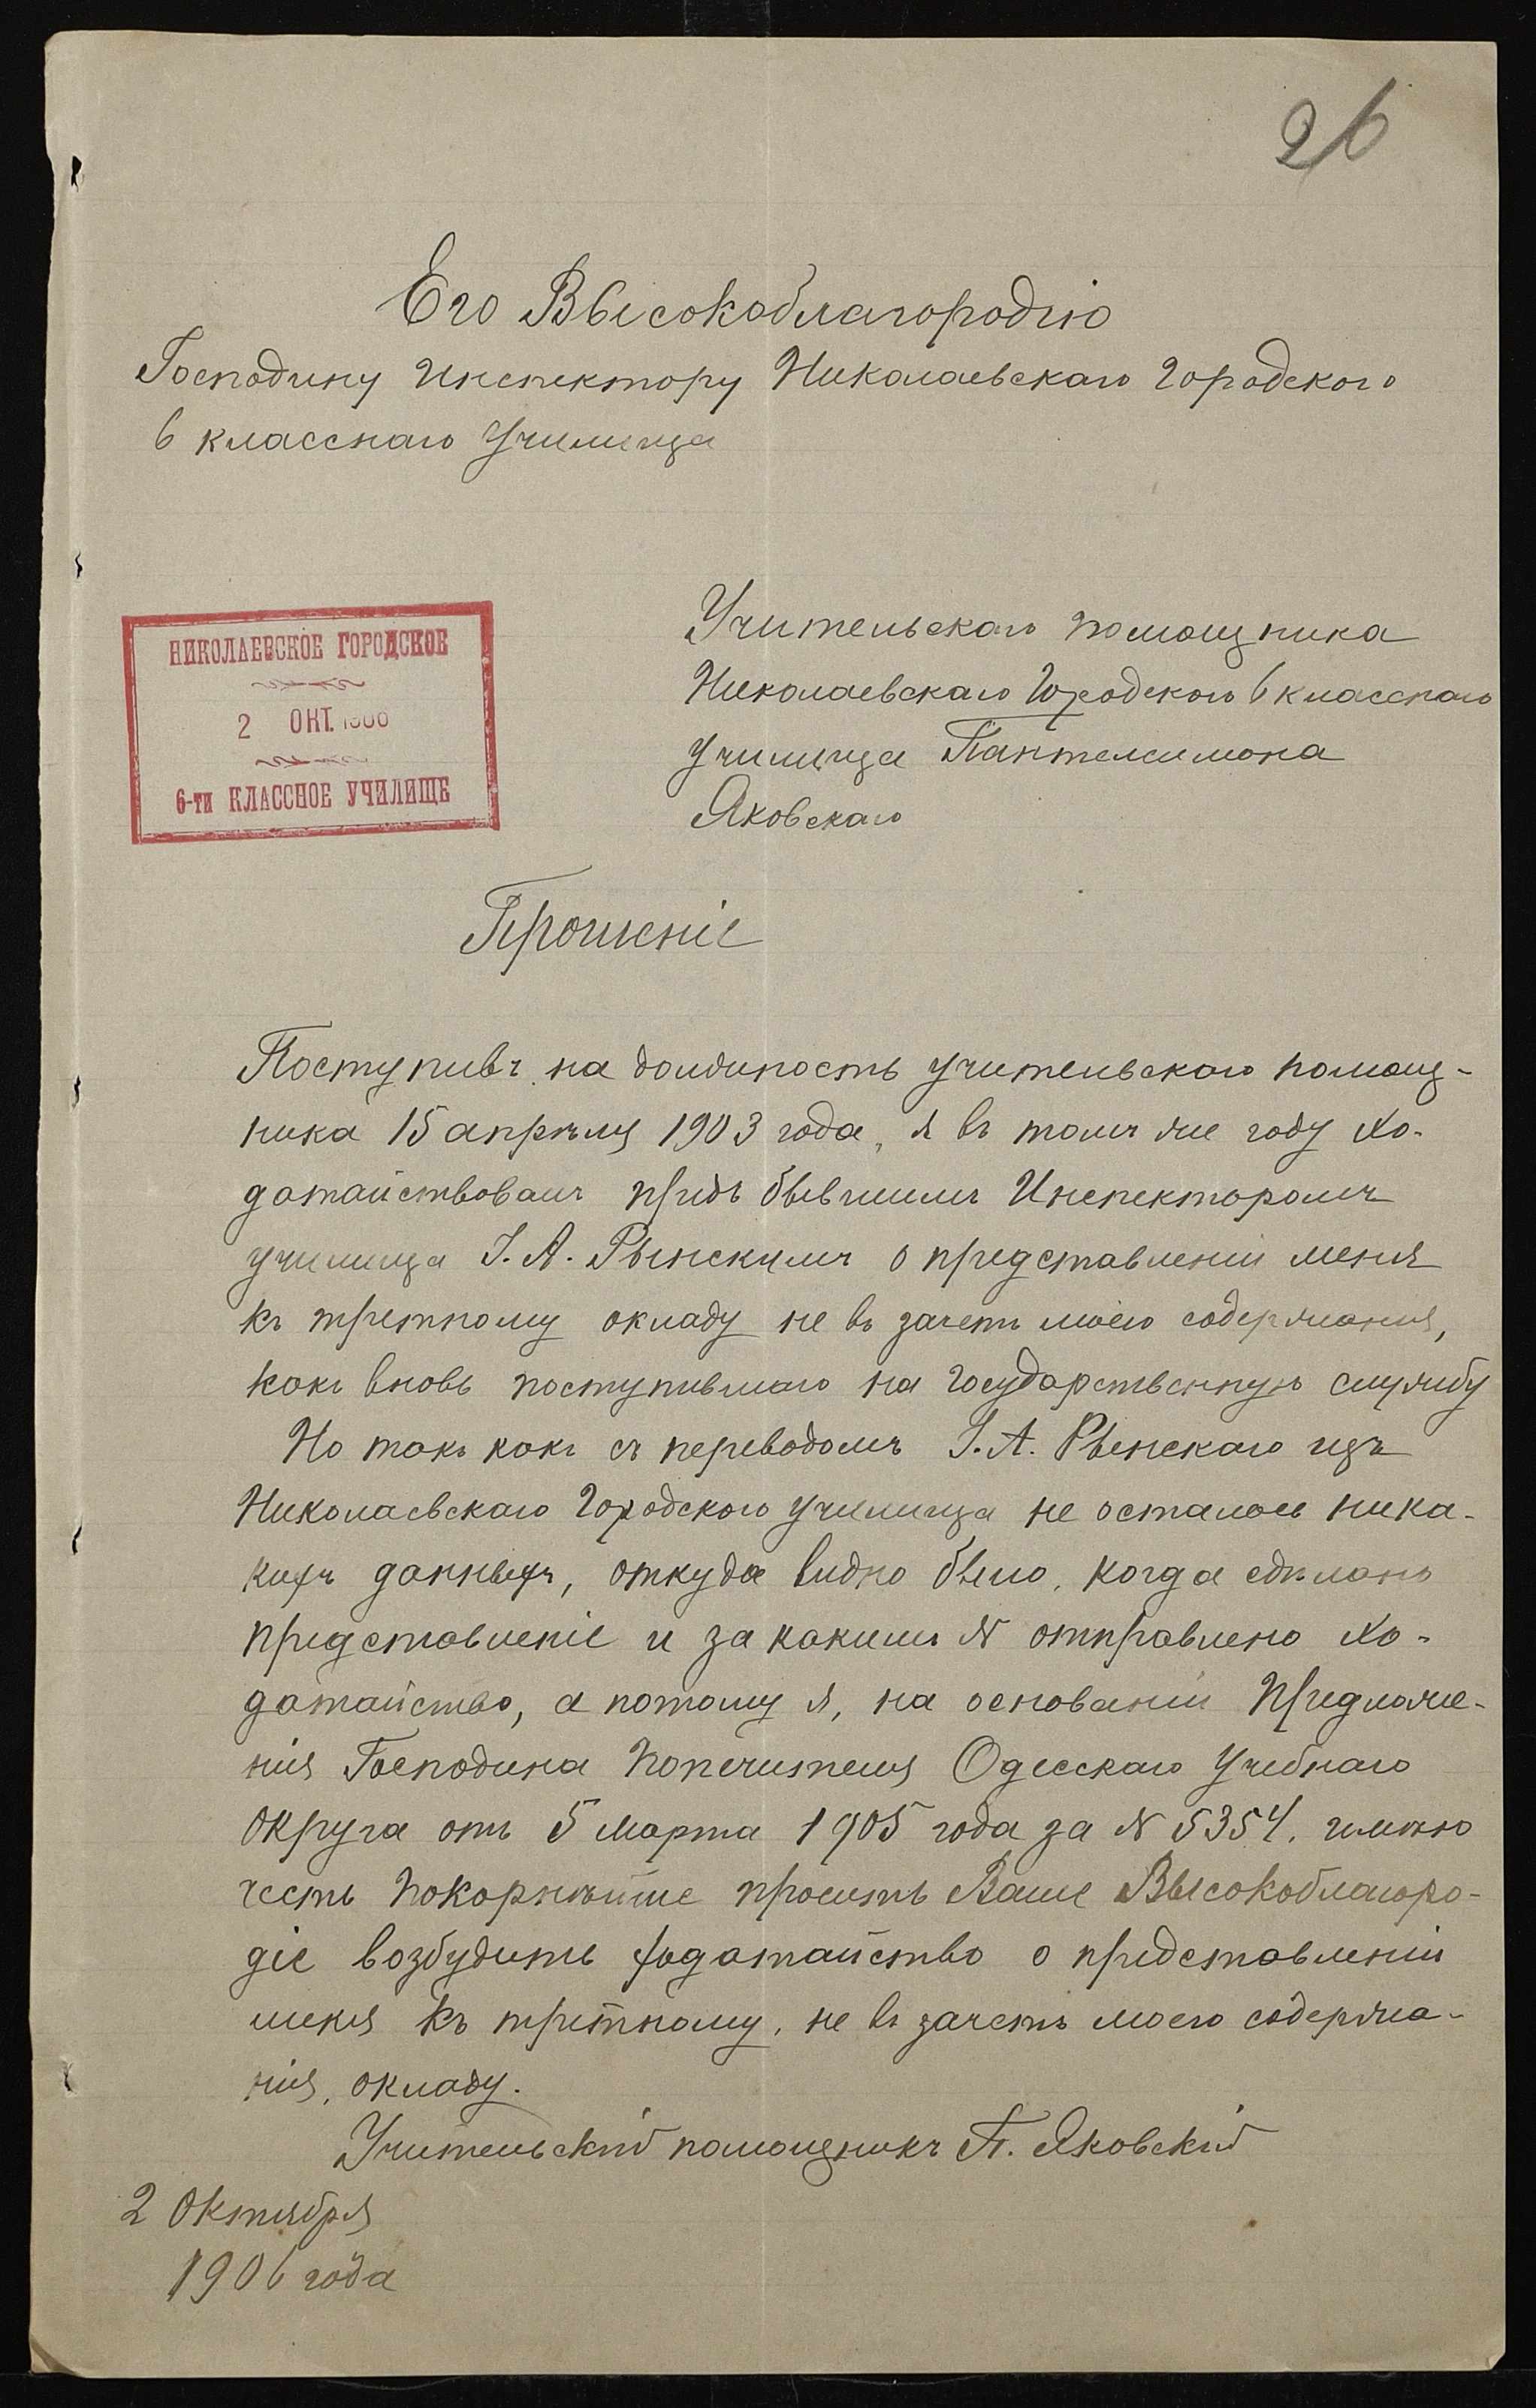 26
Его Высокоблагородію
Господину Инспектору Николаевскаго Городского
6 класснаго Училища
НИКОЛАЕВСКОЕ ГОРОДСКОЕ
2 ОКТ. 1906
6-ти КЛАССНОЕ УЧИЛИЩЕ
Учительскаго помощника
Николаевскаго Городского 6 класснаго
училища Пантелеимона
Яковскаго
Прошеніе
Поступивъ на должность учительскаго помощ-
ника 15 апрѣля 1903 года, я въ томъ же году хо-
датайствовалъ предъ бывшимъ Инспекторомъ
училища І. А. Рынскимъ о представленіи меня
къ третному окладу не въ зачетъ моего содержанія,
какъ вновь поступившаго на государственную службу
Но такъ какъ съ переводомъ І. А. Рынскаго изъ
Николаевскаго Городского училища не осталось ника-
кихъ данныхъ, откуда видно было, когда сдѣлано
представленіе и за какимъ № отправлено хо-
датайство, а потому я, на основаніи Предложе-
нія Господина Попечителя Одесскаго Учебнаго
Округа отъ 5 марта 1905 года за № 5354, имѣю
честь покорнѣйше просить Ваше Высокоблагоро-
діе возбудить ходатайство о представленіи
меня къ третному, не въ зачетъ моего содержа-
нія, окладу.
Учительскій помощникъ П. Яковскій
2 Октября
1906 года